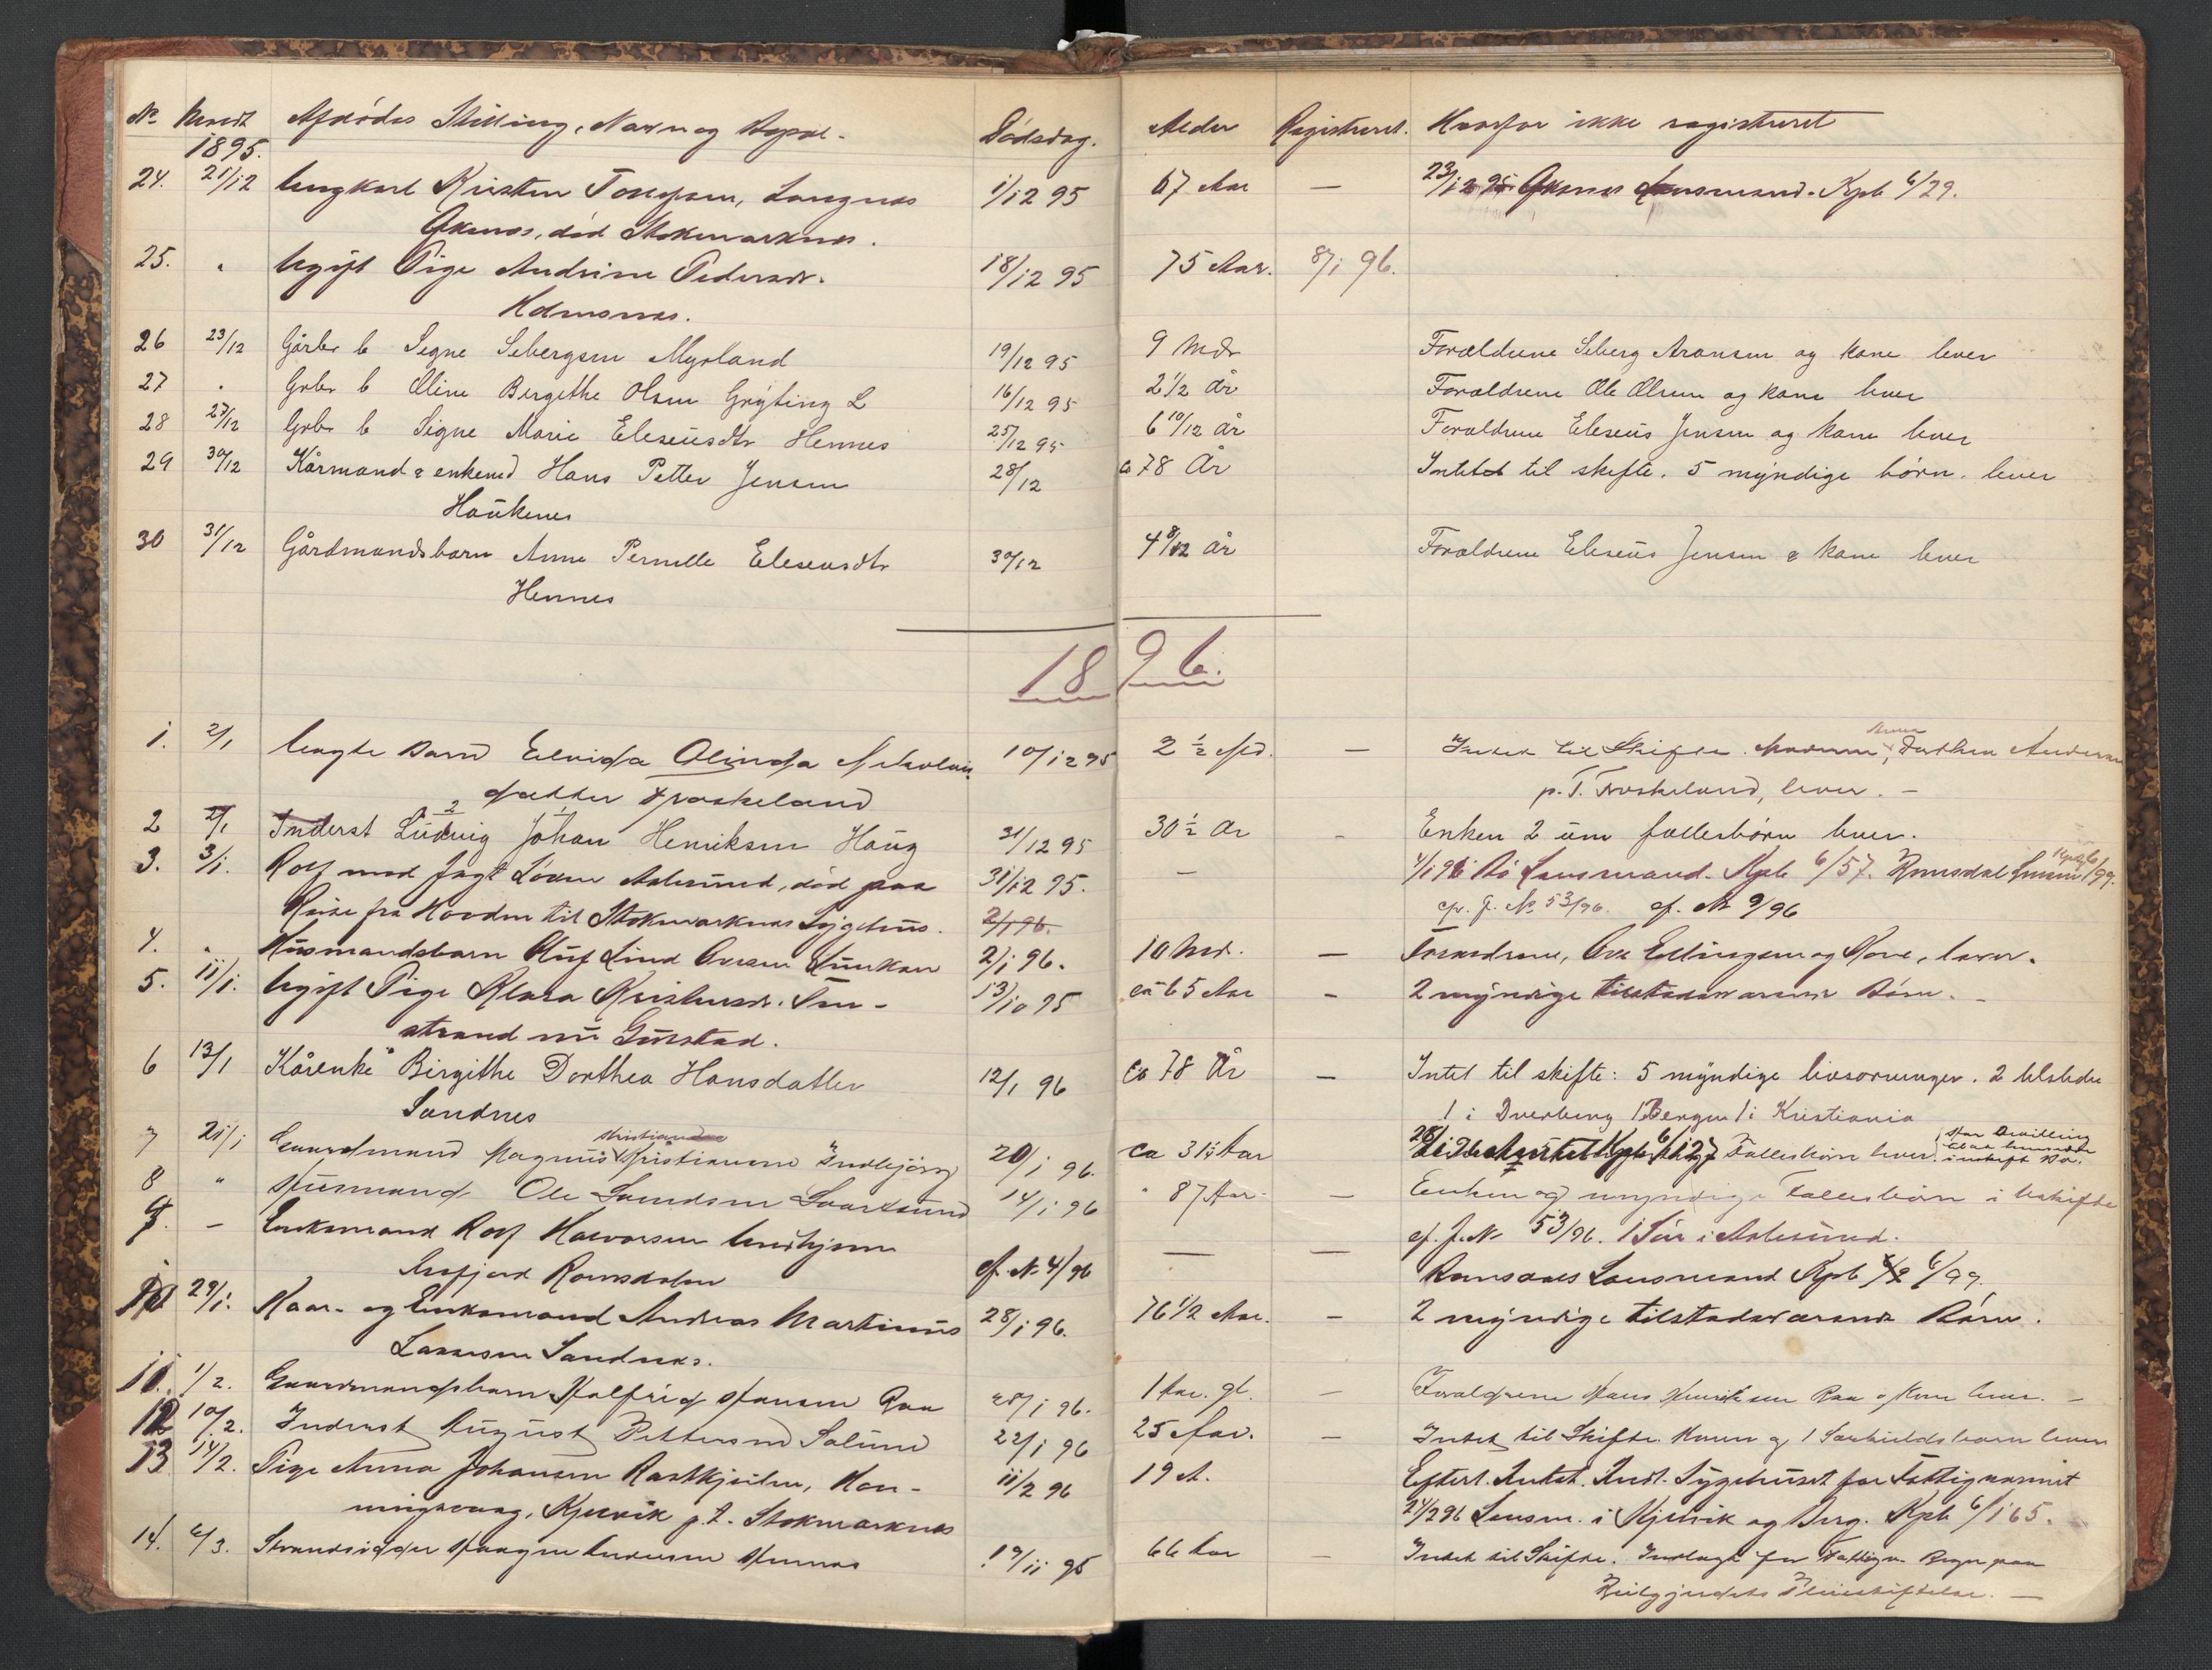 No Anmdt Afdødes Stilling, Navn og Bopæl - Dødsdag. Alder Registreret. Hvorfor ikke registreret
1895.
24. 21/12 Ungkarl Kristen Langnes 1/12 95 67 Aar — 23/12 95 Øksnes Lensmand. Kpb 6/29.
Øksnes, død Stokmarknes.
25. " Ugift Pige Andrine Pedersdr. 18/12 95 75 Aar. 8/1 96.
26 23/12 Gårbr b Signe Sebergsen Myrland 19/12 95 9 Mdr Forældrene Seberg Aronsen og kone lever
27 " Grbr b Oline Bergithe Olsen Grýting L 16/12 95 2 1/2 År Forældrene Ole Olsen og kone lever
28 27/12 Grbr b Signe Marie Eleseusdtr Hennes 25/12 95 6 10/12 år Forældrene Eleseus Jensen og kone lever
29 30/12 Kårmand & enkemd Hans Petter Jensen 28/12 ca 78 År Intet til skifte. 5 mýndige børn. lever
Haukenes
30 31/12 Gårdmandsbarn Anne Pernille Eleseusdtr 30/12 4 8/12 år Forældrene Eleseus Jensen & kone lever
Hennes
1896.
1. 2/1 Uægte Barn Elvida Olinda Nikolai 10/12 95 2 1/2 Md. — Intet til Skifte. Moderen, Dorthea Andersen
datter Froskeland p. T. Froskeland, lever. —
2 2/1 Inderst Ludvig Johan Henriksen Haug 31/12 95 30 1/2 år - Enken 2 um fællesbørn lever.
3. 3/1. Rolf med Jagt Løven Aalesund, død paa 31/12 95. — 4/1 96 Bø Lensmand. Kpb 6/57. Romsdal 6/99.
Reise fra Hovden til Stokmarknes Sygehus. 2/1 96. J. No 53/96. cf. No 9/96
4. " Husmandsbarn Lind Ovesen 2/1 96. 10 Mdr. — Forældrene, Ove Ellingsen og Kone, lever.
5. 11/1. Ugift Pige Klara Kristensdr. Tun- 13/10 95 ca 65 Aar - 2 mýndige tilstedeværende Børn. -
strand nu Guustad.
6 13/1 Kårenke Birgithe Dorthea Hansdatter 12/1 96 ca 78 År — Intet til skifte: 5 mýndige livsarvinger. 2 tilstede
Sandnes 1 i Dverberg 1 i Bergen 1 i Kristiania
7 21/1 Gaardmand Magnus Kristiansen Indbjørg 20/1 96. ca 31 Aar Fællesbørn lever.
8 " Husmand Ole 14/1 96 " 87 Aar - — Enken og umyndige Fællesbørn i Uskifte
9. — Enkemand Rolf Halvorsen cf. J. No 53/96. 1 Søn i Aalesund.
Romsdalen cf. No 4/96 — — Romsdals Lensmand Kpb 6/99.
10 29/1. Kaar- og Enkemand Andreas Martinus 28/1 96. 76 1/2 Aar. — 2 mýndige tilstedeværende Børn.
Larsen Sandnes.
11. 1/2. Gaardmandsbarn Halfrid Hansen Raa 28/1 96. 1 Aar. gl. — Forældrene Hans Henriksen Raa og Kone lever. —
12 10/2. Inderst August Pettersen 22/1 96 25 Aar. — Intet til Skifte. Konen og 1 Særkuldsbarn lever
13 14/2. Pige Anna Johansen Hon- 11/2 96 19 A. Efterl. Intet. Indl. Sygehuset for Fattigvæsnet
ningsvaag, Kjelvik p. t. Stokmarknes 24/2 96 Lensm. i Kjelvik og Kpb 6/165.
14. 6/3. Strandsidder Haagen Andersen 19/11 95 66 Aar — Intet til Skifte. Indlagt for Fattigv. Regn paa